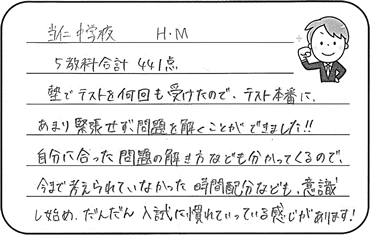 当仁中学校 H・M
5教科合計 441点
塾でテストを何回も受けたので、テスト本番に、
あまり緊張せず問題を解くことができました!!
自分に合った問題の解き方なども分かってくるので、
今まで考えられていなかった時間配分なども、意識
し始め、だんだん入試に慣れていっている感じがあります!